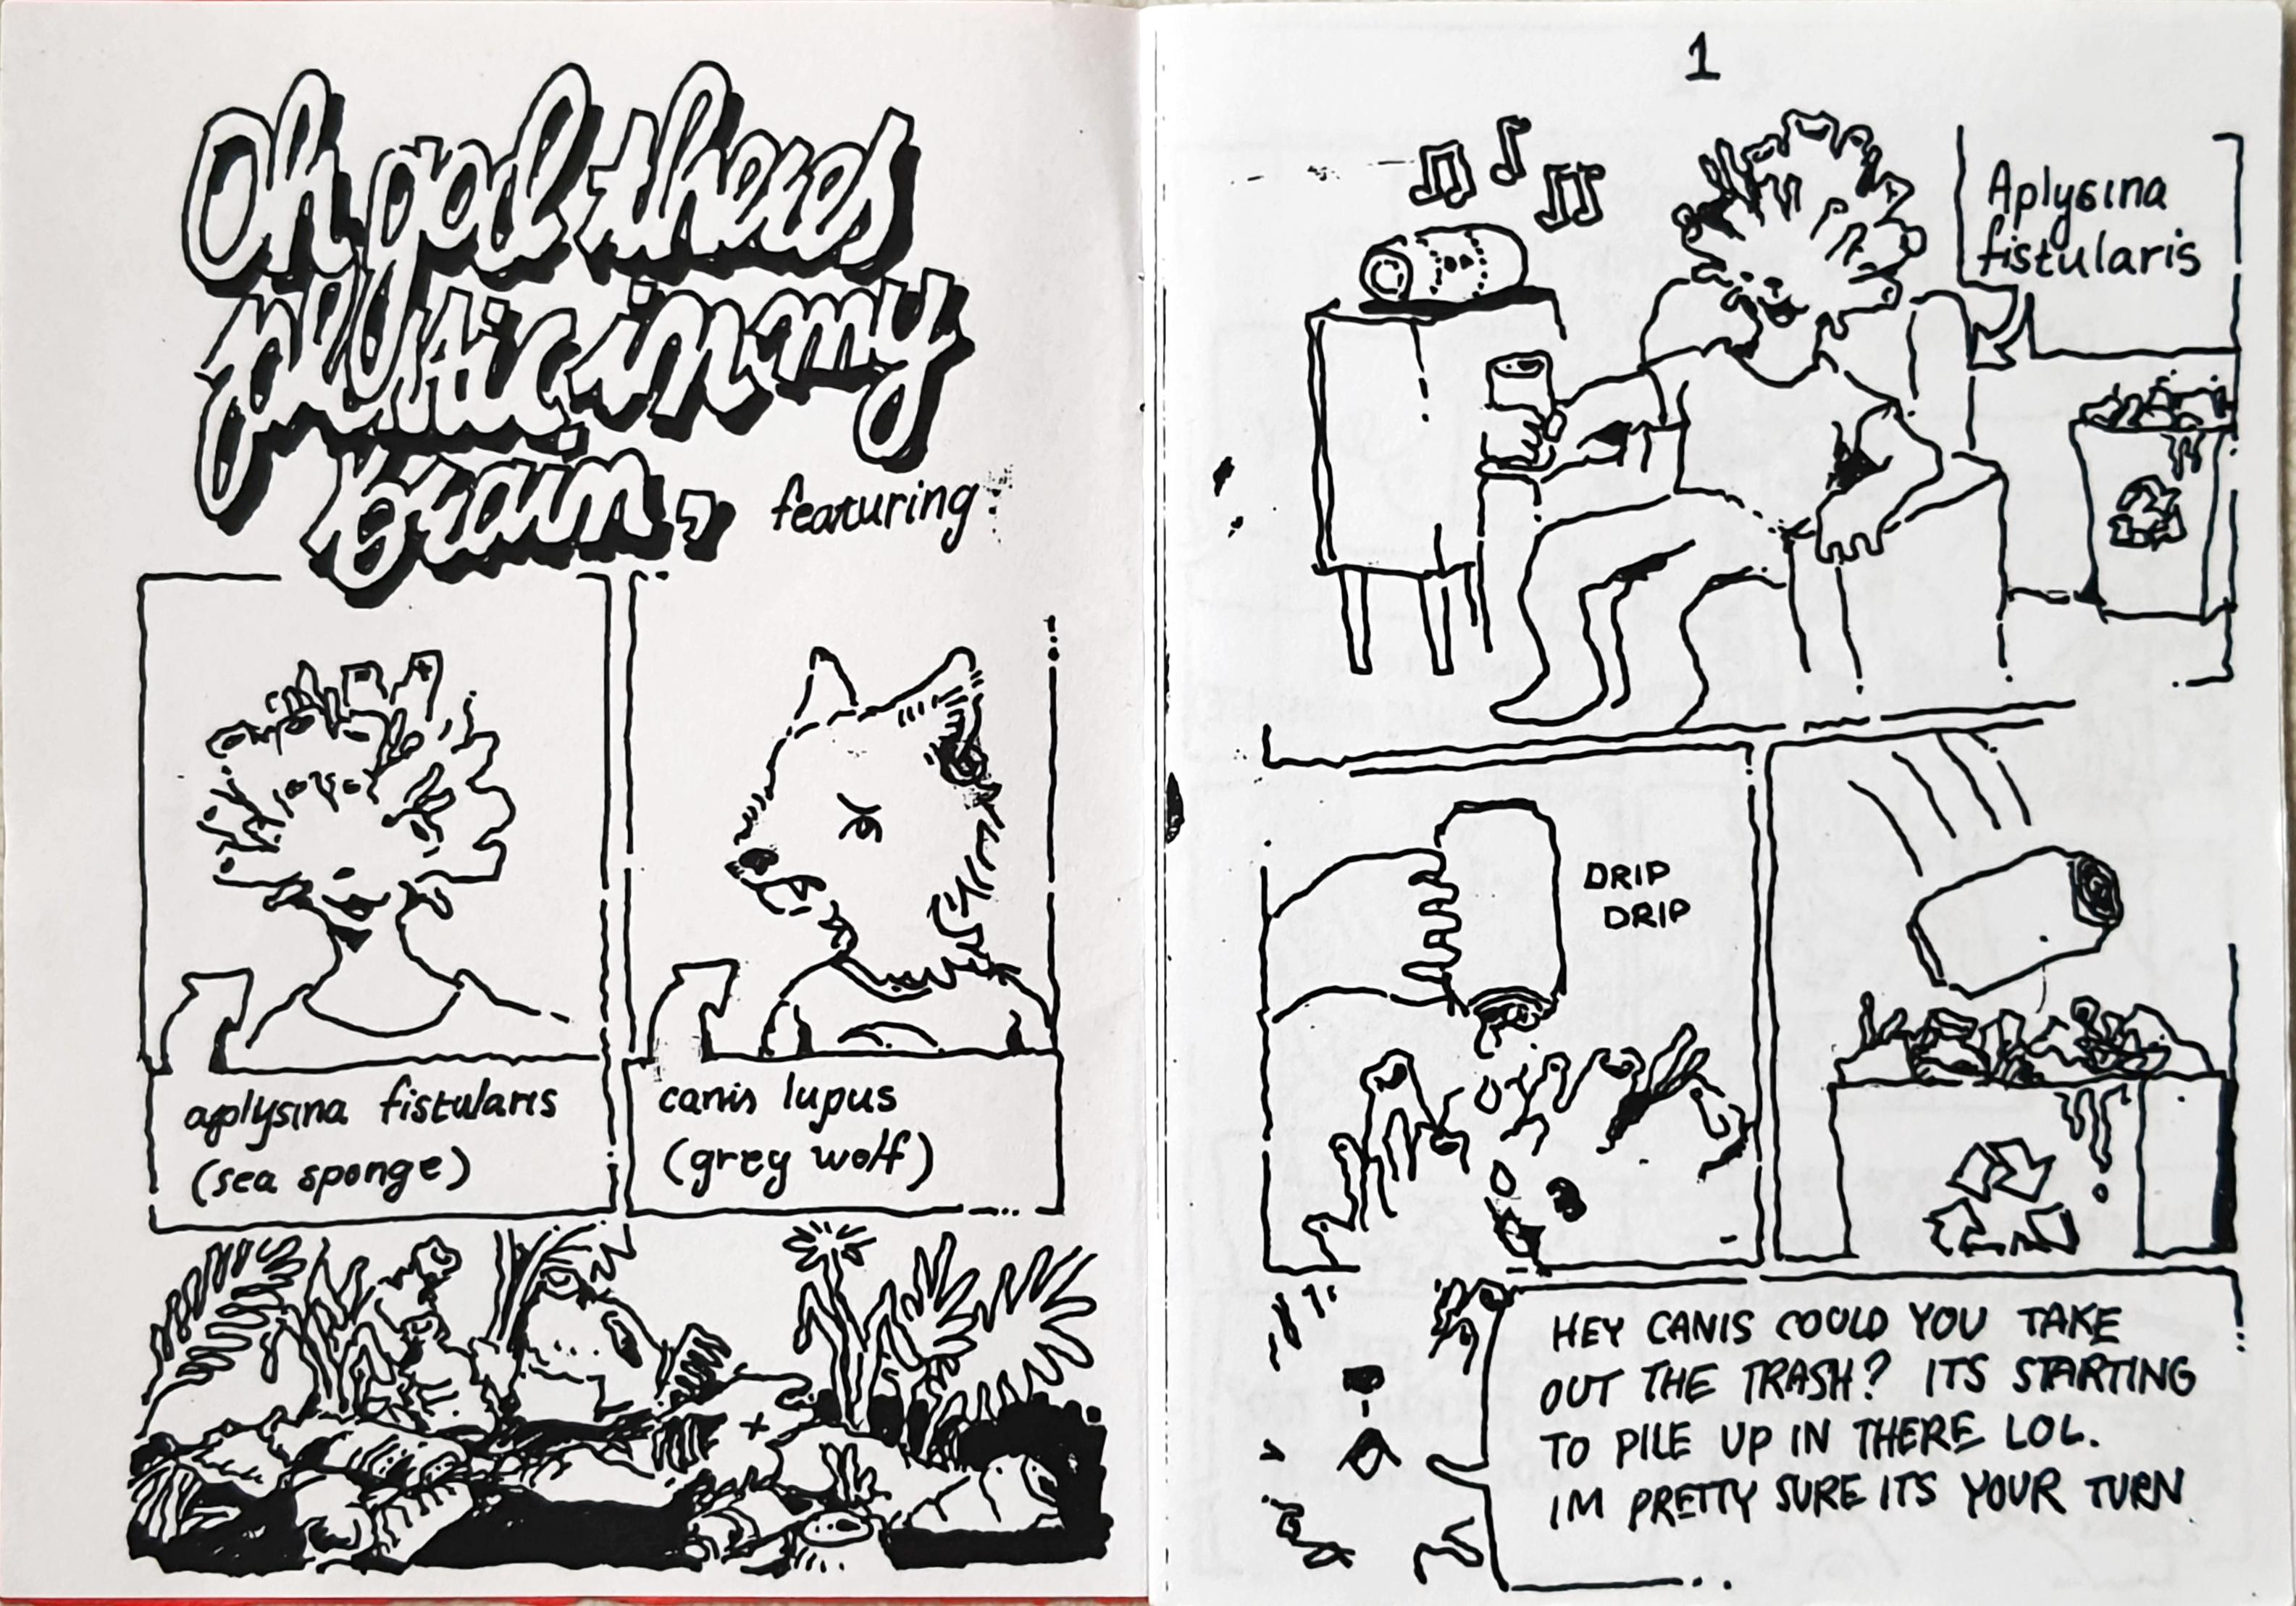 Oh god theres
plastic in my
brain, featuring:
aplysina fistularis
(sea sponge)
canis lupus
(grey wolf)
1
Aplysina
fistularis
DRIP
DRIP
HEY CANIS COULD YOU TAKE
OUT THE TRASH? ITS STARTING
TO PILE UP IN THERE LOL.
IM PRETTY SURE ITS YOUR TURN